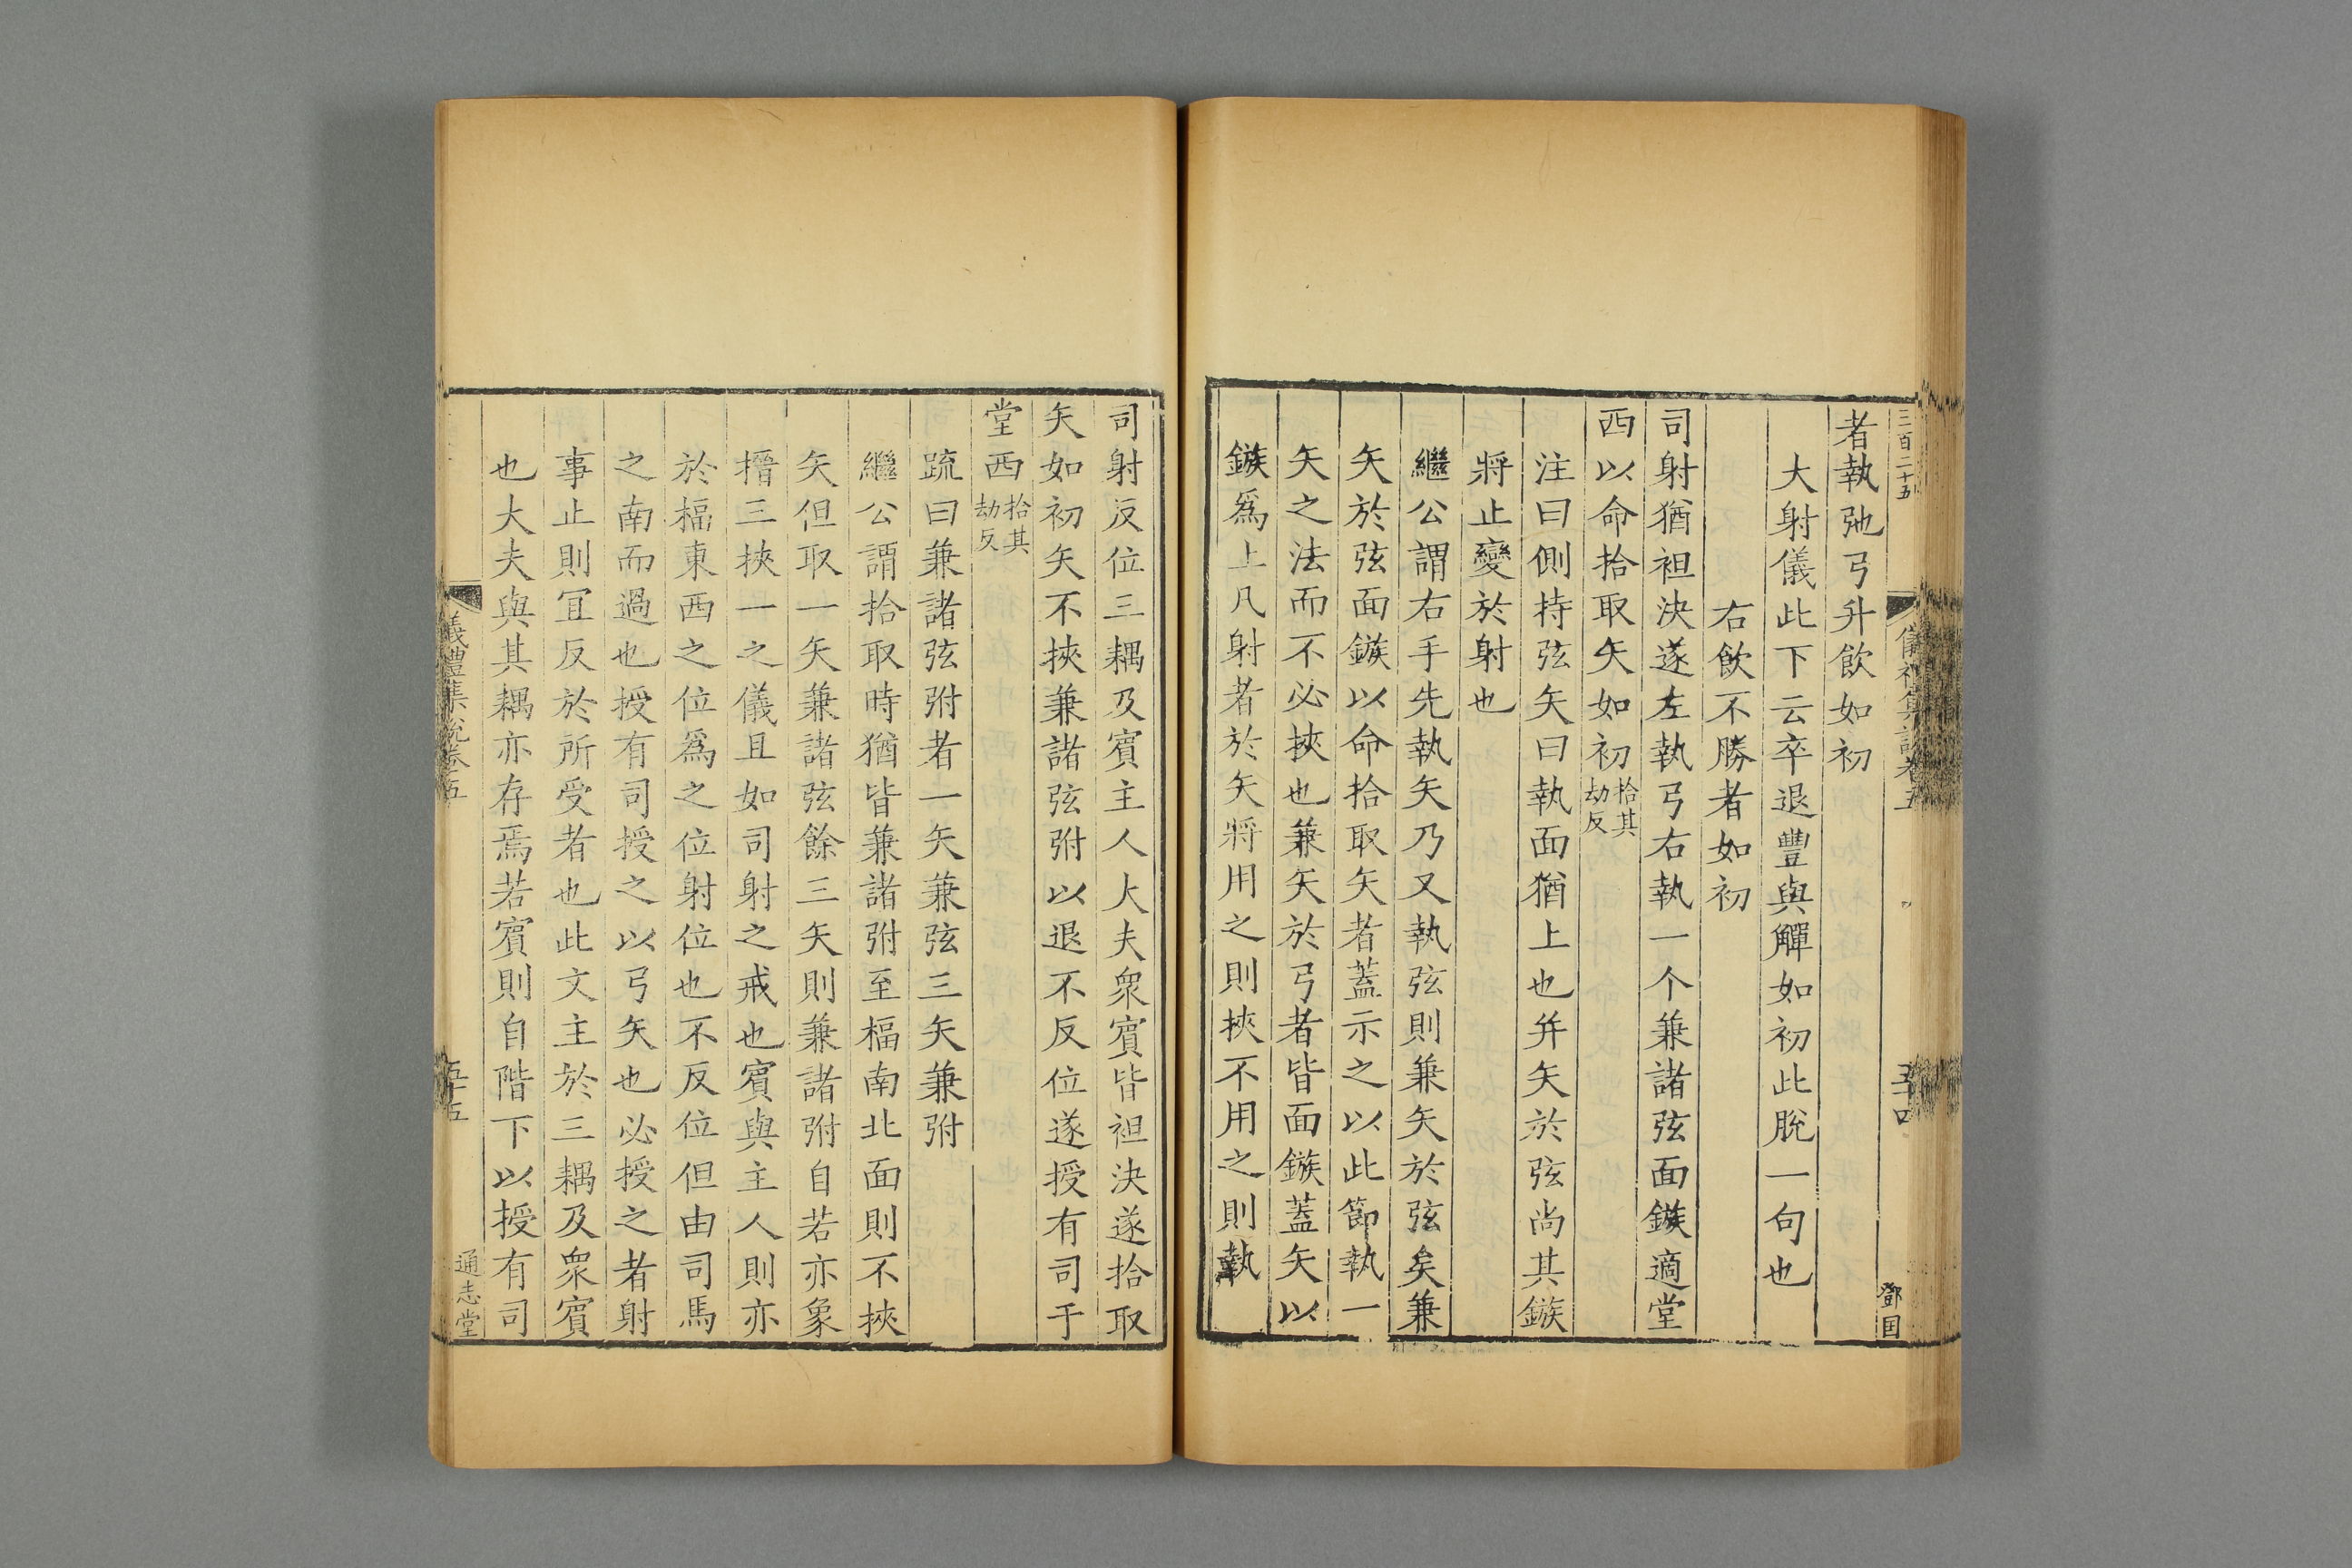 三百二十五
儀禮集說卷五
五十四
鄧国
者執弛弓升飲如初
大射儀此下云卒退豐與觶如初此脫一句也
右飲不勝者如初
司射猶袒決遂左執弓右執一个兼諸弦面鏃適堂
西以命拾取矢如初拾其劫反
注曰側持弦矢曰執面猶上也并矢於弦尚其鏃
將止變於射也
繼公謂右手先執矢乃又執弦則兼矢於弦矣兼
矢於弦面鏃以命拾取矢者蓋示之以此節執一
矢之法而不必挾也兼矢於弓者皆面鏃蓋矢以
鏃爲上凡射者於矢將用之則挾不用之則執
司射反位三耦及賓主人大夫衆賓皆袒決遂拾取
矢如初矢不挾兼諸弦弣以退不反位遂授有司于
堂西拾其劫反
疏曰兼諸弦弣者一矢兼弦三矢兼弣
繼公謂拾取時猶皆兼諸弣至楅南北面則不挾
矢但取一矢兼諸弦餘三矢則兼諸弣自若亦象
搢三挾一之儀且如司射之戒也賓與主人則亦
於楅東西之位爲之位射位也不反位但由司馬
之南而過也授有司授之以弓矢也必授之者射
事止則宜反於所受者也此文主於三耦及衆賓
也大夫與其耦亦存焉若賓則自階下以授有司
儀禮集說卷五
五十五
通志堂